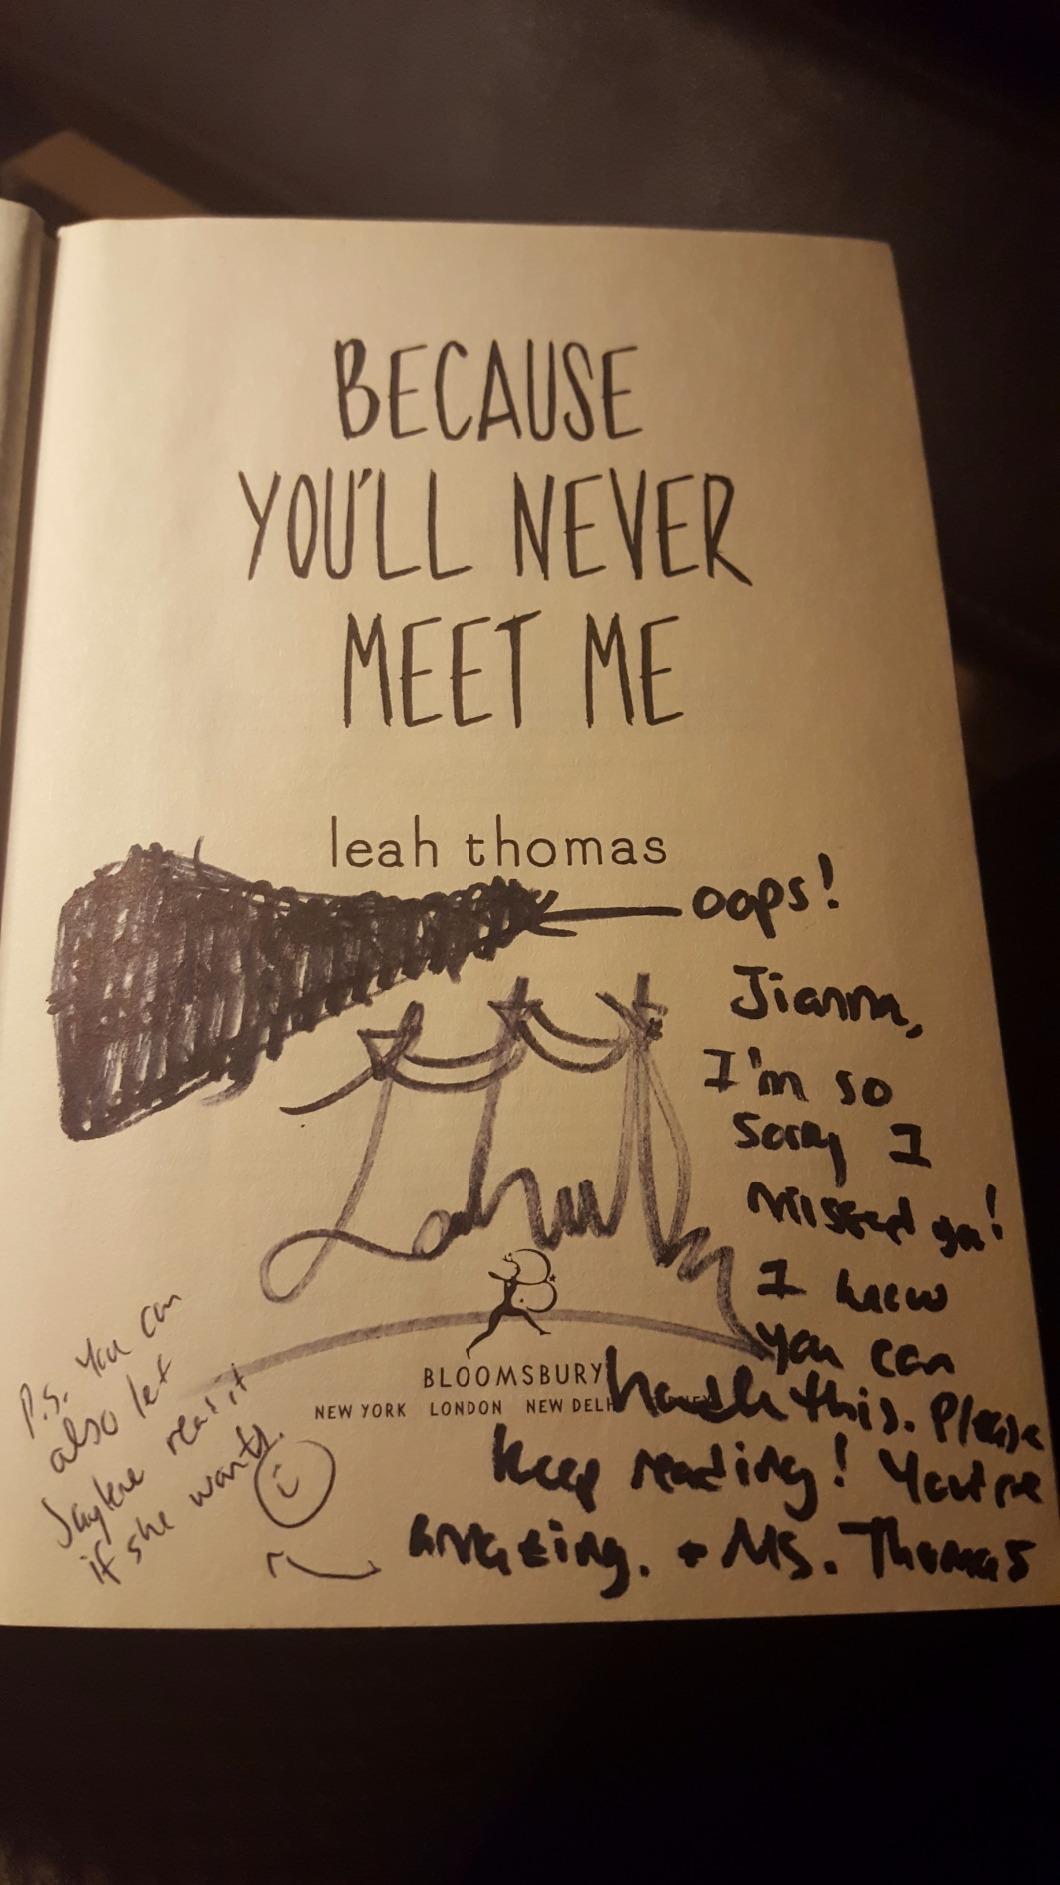 BECAUSE
YOU'LL NEVER
MEET ME
leah thomas
oops!
Jianna,
I'm so
sorry I
missed you!
I know
you can
handle this. Please
keep reading! You're
amazing. + Ms. Thomas
BLOOMSBURY
NEW YORK LONDON NEW DELH
P.S. You can
also let
Jaylene read it
if she wants.